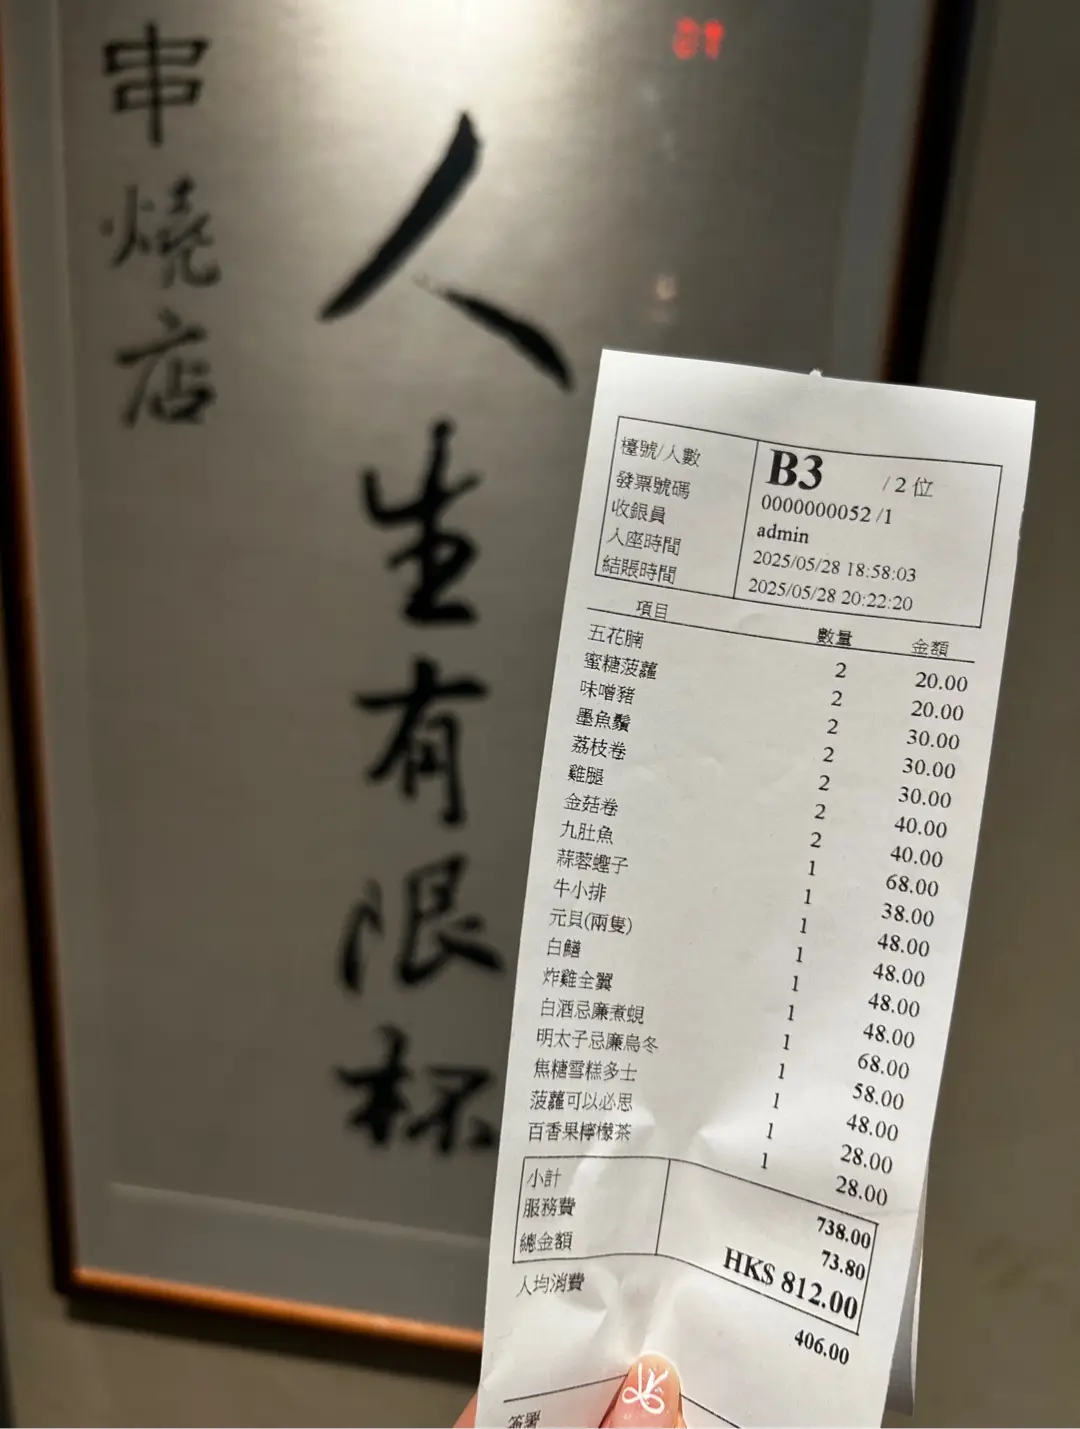 串燒店
人生有限杯
檯號/人數 B3 / 2 位
發票號碼 0000000052 /1
收銀員 admin
入座時間 2025/05/28 18:58:03
結賬時間 2025/05/28 20:22:20
項目 數量 金額
五花腩 2 20.00
蜜糖菠蘿 2 20.00
味噌豬 2 30.00
墨魚鬚 2 30.00
荔枝卷 2 30.00
雞腿 2 40.00
金菇卷 2 40.00
九肚魚 1 68.00
蒜蓉蟶子 1 38.00
牛小排 1 48.00
元貝(兩隻) 1 48.00
白鱔 1 48.00
炸雞全翼 1 48.00
白酒忌廉煮蜆 1 68.00
明太子忌廉烏冬 1 58.00
焦糖雪糕多士 1 48.00
菠蘿可以必思 1 28.00
百香果檸檬茶 1 28.00
小計 738.00
服務費 73.80
總金額 HK$ 812.00
人均消費 406.00
簽署